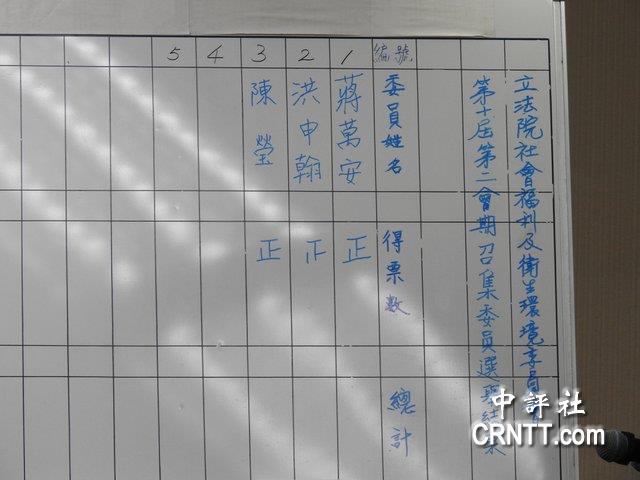 立法院社會福利及衛生環境委員會
第十屆第二會期召集委員選舉結果
編號
委員姓名
得票數
總計
1
蔣萬安
正
2
洪申翰
3
陳瑩
正
4
5
中評社
CRNTT.com